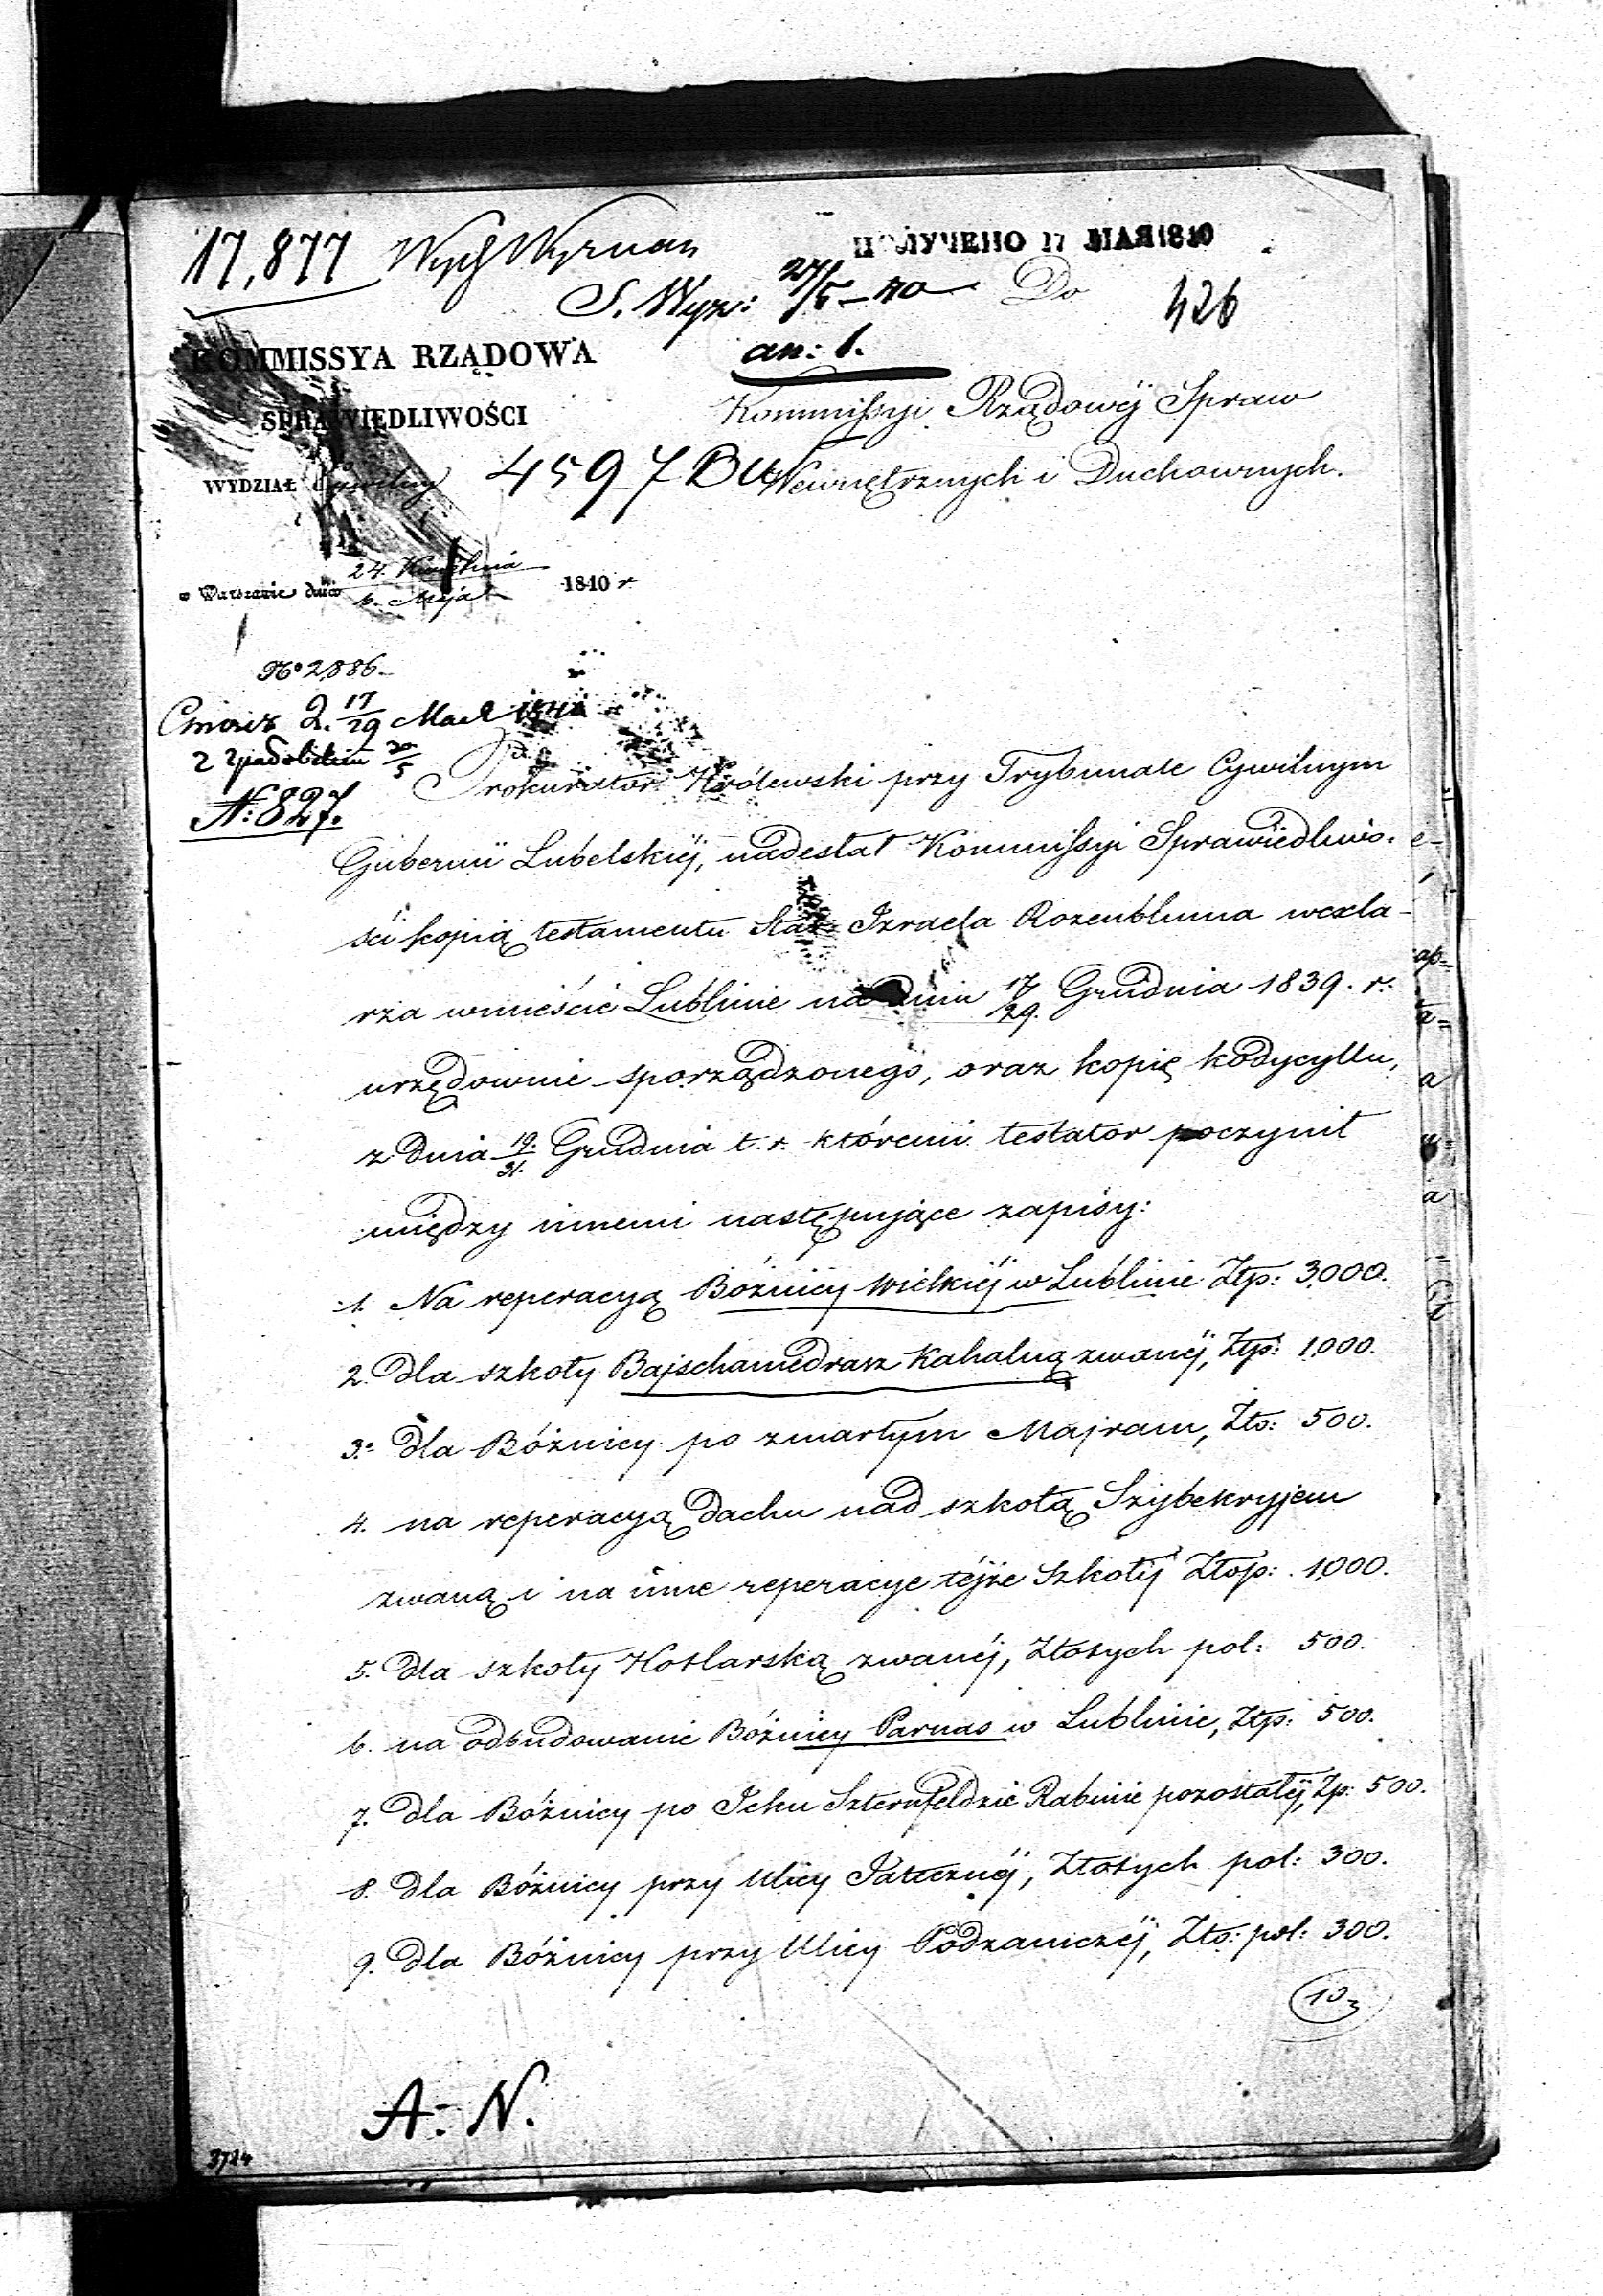 17,877 Wydz Wyznan
ПОЛУЧЕНО 17 МАЯ 1840
S. Wyz: 27/5 - 40
Do
426
an: 1.
KOMMISSYA RZĄDOWA
SPRAWIEDLIWOŚCI
Kommissyi Rządowéj Spraw
WYDZIAŁ Cywilny
4597
Wewnętrznych i Duchownych.
w Warszawie dnia 24. Kwietnia / 6. Maja 1840 r
No 2,886.
17/29 Maja
N: 827.
Prokurator Królewski przy Trybunale Cywilnym
Gubernii Lubelskiéj, nadesłał Kommissyi Sprawiedliwo-
ści kopią testamentu Star: Izraela Rozenbluma wexla-
rza w mieście Lublinie na dniu 17/29. Grudnia 1839. r:
urzędownie sporządzonego, oraz kopię kodycyllu,
z dnia 19./31. Grudnia t. r. któremi testator poczynił
między innemi następujące zapisy:
1. Na reperacyą Bóżnicy Wielkiéj w Lublinie Złp: 3000.
2. dla szkoły Bajschamedrasz Kahalną zwanéj, Złp: 1000.
3. dla Bóżnicy po zmarłym Majram, Zło: 500.
4. na reperacyą dachu nad szkołą Szybekryjem
zwaną i na inne reperacye téjże Szkoły Złop: 1000.
5. dla szkoły Kotlarską zwanéj, Złotych pol: 500.
6. na odbudowanie Bóżnicy Parnas w Lublinie, Złp: 500.
7. dla Bóżnicy po Icku Szternfeldzie Rabinie pozostałéj, Zp: 500.
8. dla Bóżnicy przy Ulicy Jatecznéj, Złotych pol: 300.
9. dla Bóżnicy przy Ulicy Podzamczéj, Zło: pol: 300.
103
A. N.
3724